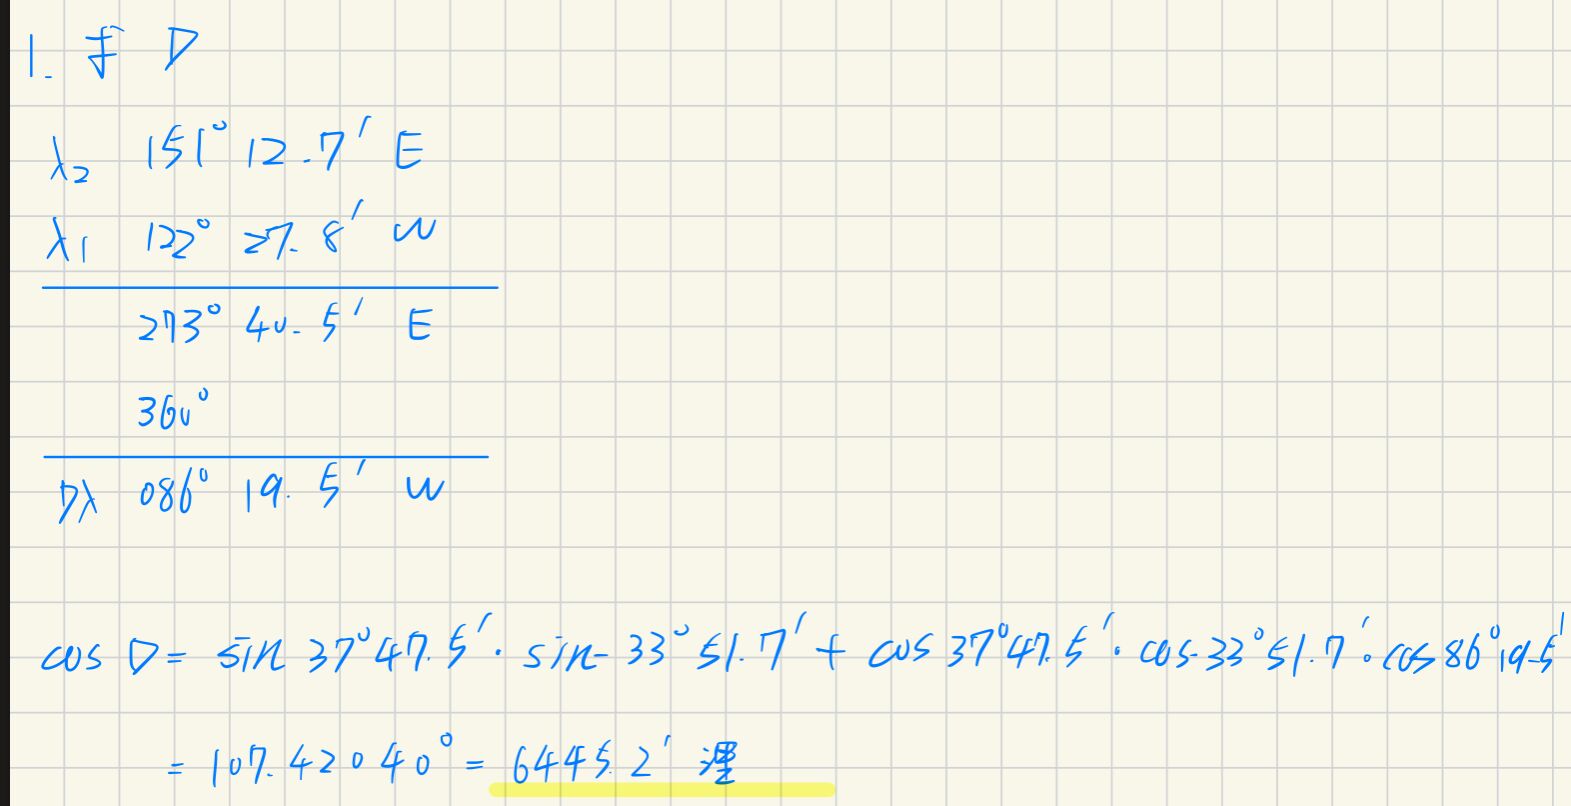 1. 求 D
λ2 151° 12.7' E
λ1 122° 27.8' W
273° 40.5' E
360°
Dλ 086° 19.5' W
cos D = sin 37°47.5' · sin -33°51.7' + cos 37°47.5' · cos -33°51.7' · cos 86°19.5'
= 107.42040° = 6445.2' 浬